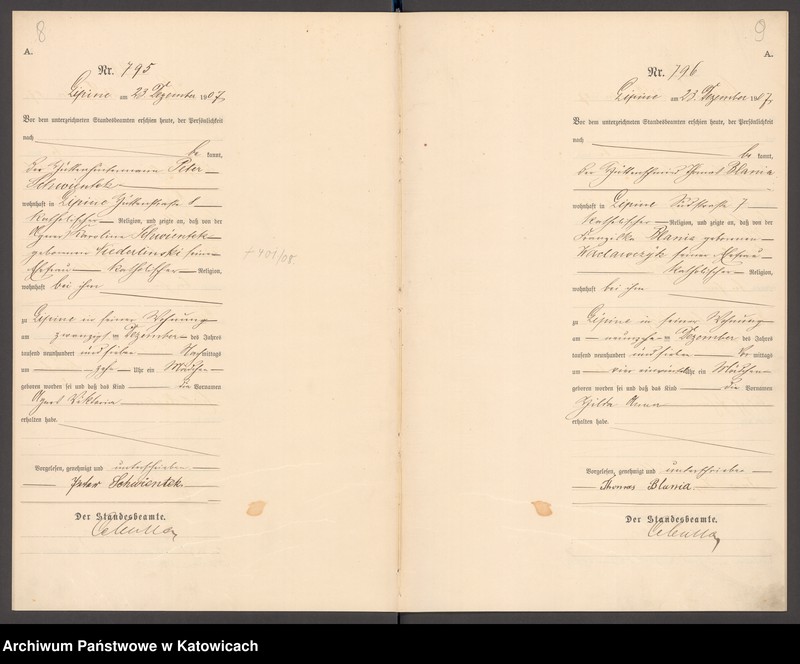 8
A.
Nr. 795
Lipine am 23 Dezember 1907
Vor dem unterzeichneten Standesbeamten erschien heute, der Persönlichkeit
nach
be kannt,
der Peter
Schwientek
wohnhaft in Lipine Hüttenstraße 1
katholischer Religion, und zeigte an, daß von der
Agnes Karoline Schwientek
geborenen Niederlinski seiner
Ehefrau katholischer Religion,
wohnhaft bei ihm
zu Lipine in seiner Wohnung
am zwanzigsten Dezember des Jahres
tausend neunhundert und sieben Nachmittags
am zehn Uhr ein Mädchen
geboren worden sei und daß das Kind die Vornamen
Agnes Viktoria
erhalten habe.
+ 401/08
Vorgelesen, genehmigt und unterschrieben
Peter Schwientek
Der Standesbeamte.
9
A.
Nr. 796
Lipine am 23. Dezember 1907
Vor dem unterzeichneten Standesbeamten erschien heute, der Persönlichkeit
nach
be kannt,
der Thomas Blania
wohnhaft in Lipine Südstraße 7
katholischer Religion, und zeigte an, daß von der
Franziska Blania geborenen
Waclawczyk seiner Ehefrau
katholischer Religion,
wohnhaft bei ihm
zu Lipine in seiner Wohnung
am Dezember des Jahres
tausend neunhundert und sieben Vor mittags
am vier Uhr ein Mädchen
geboren worden sei und daß das Kind die Vornamen
Hilda Anna
erhalten habe.
Vorgelesen, genehmigt und unterschrieben
Thomas Blania
Der Standesbeamte.
Archiwum Państwowe w Katowicach